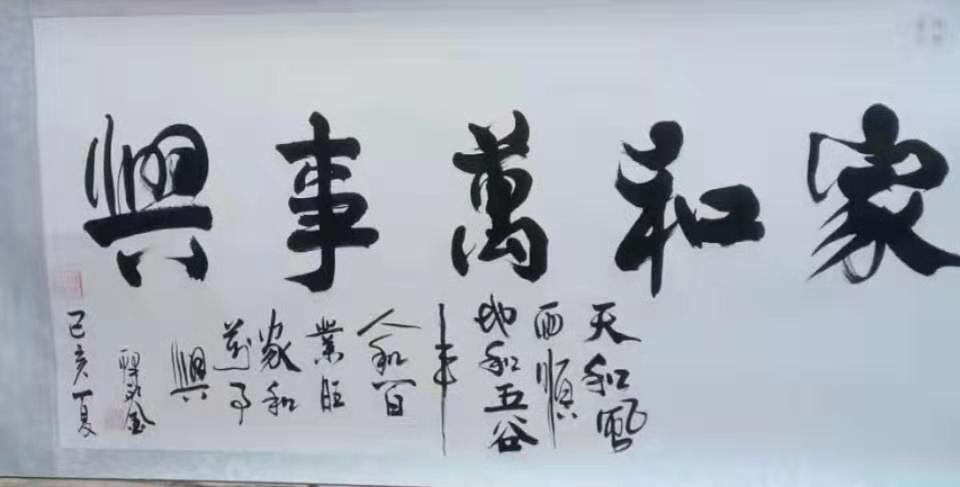 家和萬事興
天和風
雨順
地和五谷
丰
人和百
業旺
家和
萬事
興
己亥夏